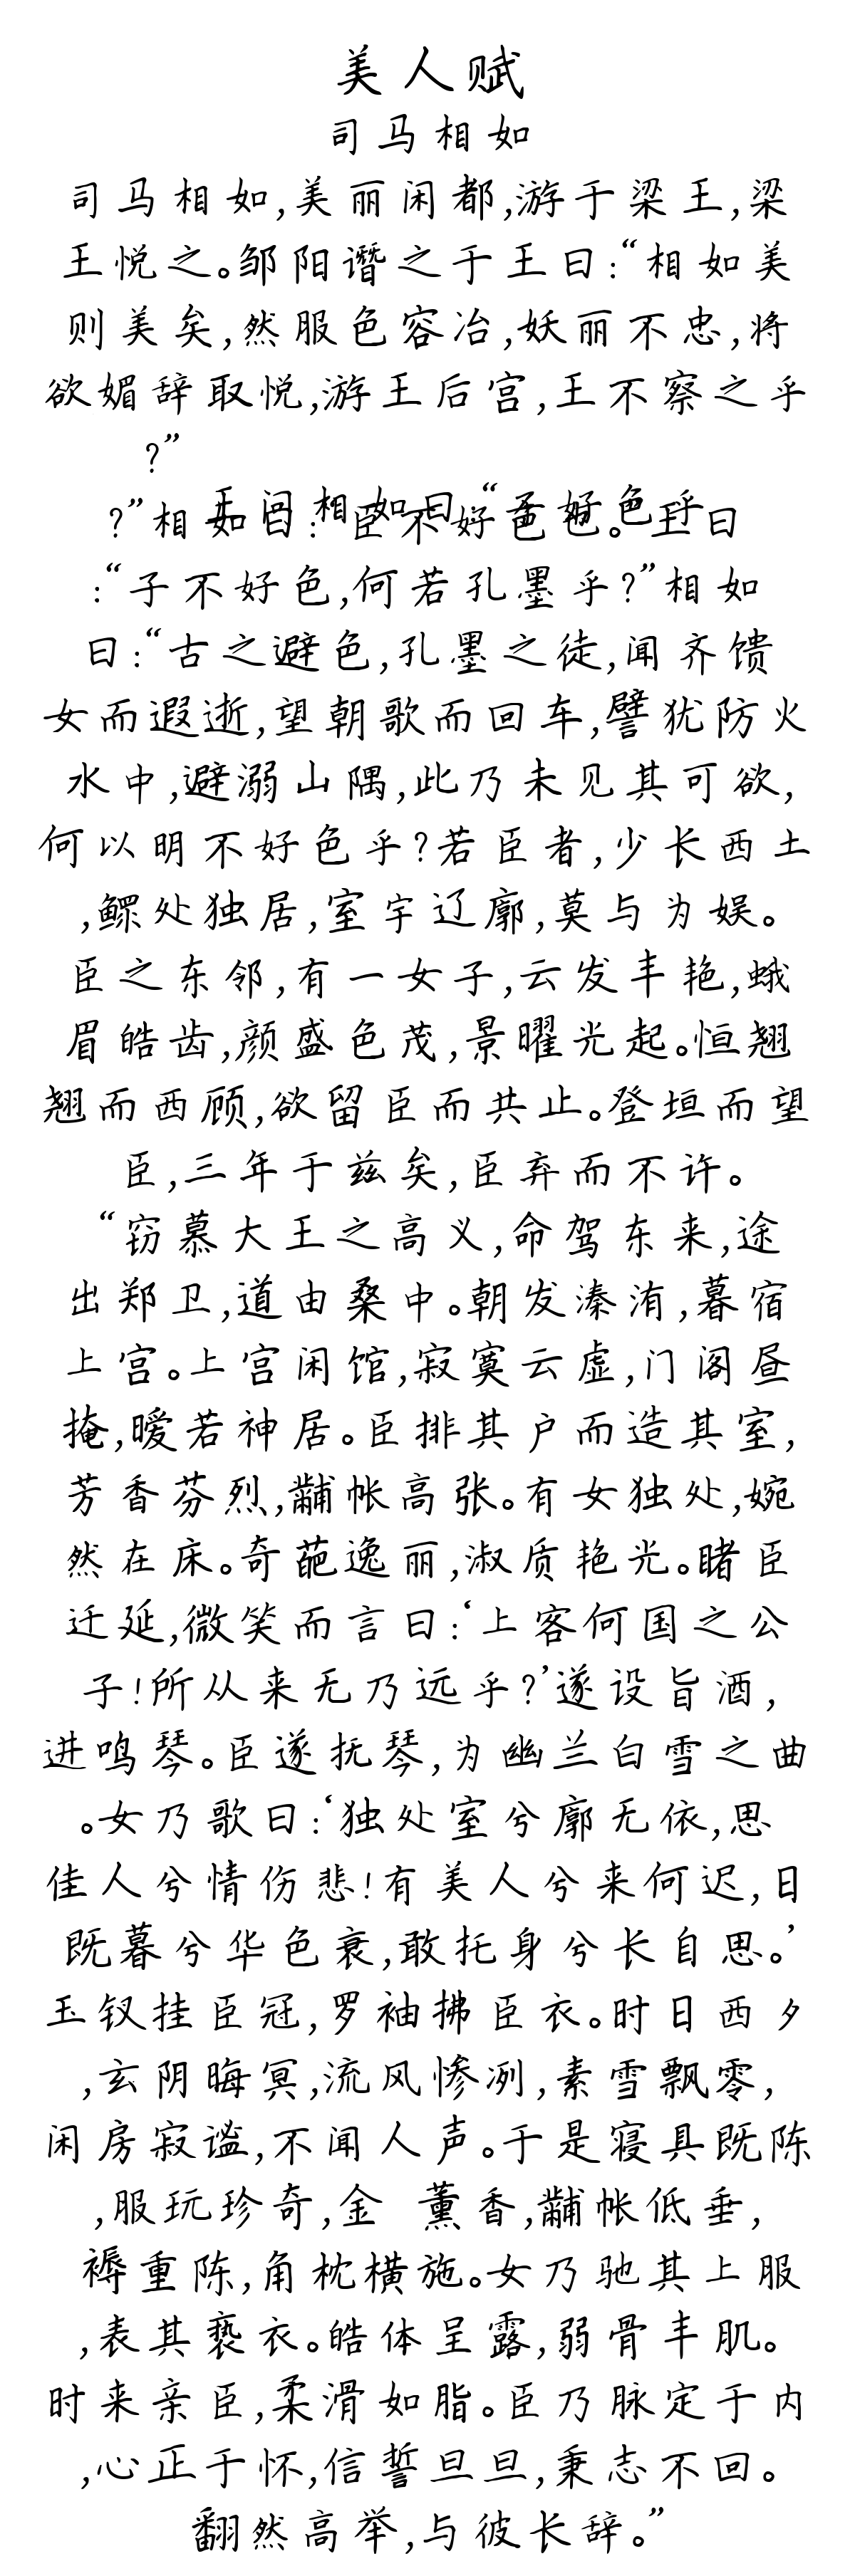 美人赋
司马相如
司马相如,美丽闲都,游于梁王,梁
王悦之。邹阳谮之于王曰:“相如美
则美矣,然服色容冶,妖丽不忠,将
欲媚辞取悦,游王后宫,王不察之乎
?”
王问相如曰:“子好色乎
?”相如曰:“臣不好色也。”王曰
:“子不好色,何若孔墨乎?”相如
曰:“古之避色,孔墨之徒,闻齐馈
女而遐逝,望朝歌而回车,譬犹防火
水中,避溺山隅,此乃未见其可欲,
何以明不好色乎?若臣者,少长西土
,鳏处独居,室宇辽廓,莫与为娱。
臣之东邻,有一女子,云发丰艳,蛾
眉皓齿,颜盛色茂,景曜光起。恒翘
翘而西顾,欲留臣而共止。登垣而望
臣,三年于兹矣,臣弃而不许。
“窃慕大王之高义,命驾东来,途
出郑卫,道由桑中。朝发溱洧,暮宿
上宫。上宫闲馆,寂寞云虚,门阁昼
掩,暧若神居。臣排其户而造其室,
芳香芬烈,黼帐高张。有女独处,婉
然在床。奇葩逸丽,淑质艳光。睹臣
迁延,微笑而言曰:‘上客何国之公
子!所从来无乃远乎?’遂设旨酒,
进鸣琴。臣遂抚琴,为幽兰白雪之曲
。女乃歌曰:‘独处室兮廓无依,思
佳人兮情伤悲!有美人兮来何迟,日
既暮兮华色衰,敢托身兮长自思。’
玉钗挂臣冠,罗袖拂臣衣。时日西夕
,玄阴晦冥,流风惨冽,素雪飘零,
闲房寂谧,不闻人声。于是寝具既陈
,服玩珍奇,金 薰香,黼帐低垂,
褥重陈,角枕横施。女乃驰其上服
,表其亵衣。皓体呈露,弱骨丰肌。
时来亲臣,柔滑如脂。臣乃脉定于内
,心正于怀,信誓旦旦,秉志不回。
翻然高举,与彼长辞。”